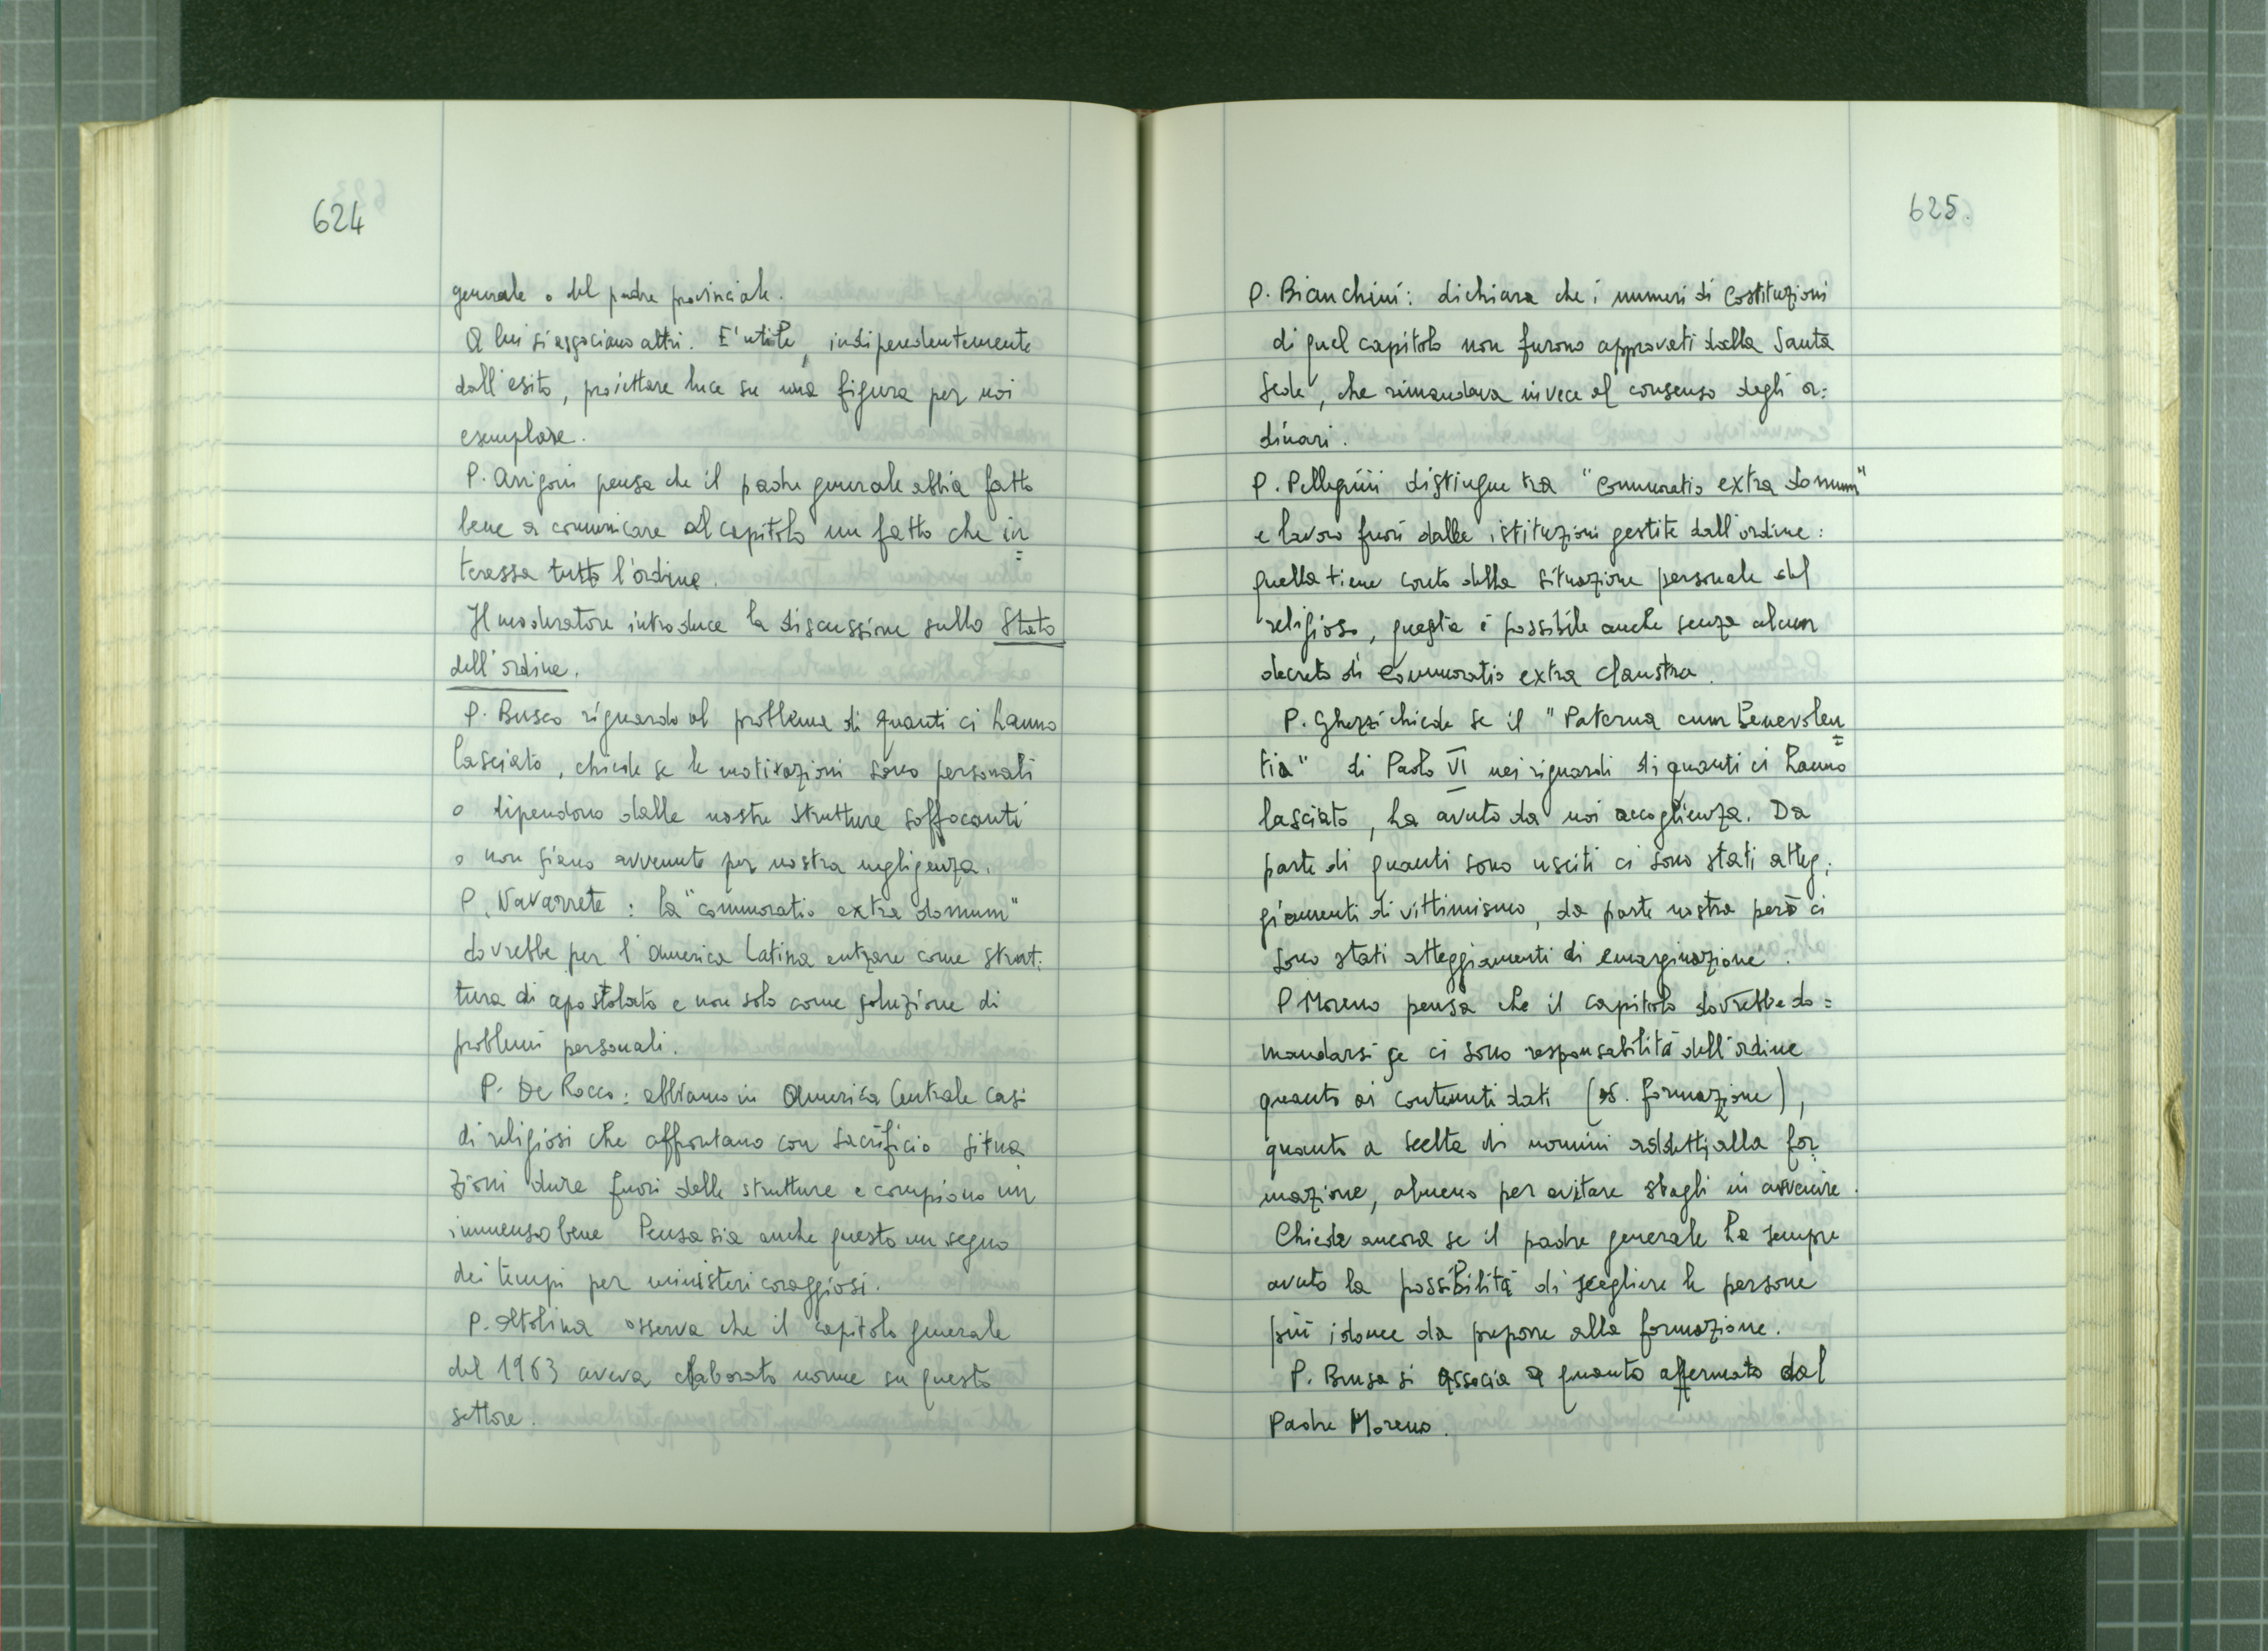 624
generale o del padre provinciale.
A lui si associano altri. E' utile, indipendentemente
dall'esito, proiettare luce su una figura per noi
esemplare.
P. Arrigoni pensa che il padre generale abbia fatto
bene a comunicare al capitolo un fatto che in=
teressa tutto l'ordine.
Il moderatore introduce la discussione sullo Stato
dell'ordine.
P. Busco riguardo al problema di quanti ci hanno
lasciato, chiede se le motivazioni sono personali
o dipendono dalle nostre strutture soffocanti
o non siano avvenute per nostra negligenza.
P. Navarrete: la "commoratio extra domum"
dovrebbe per l'America Latina entrare come strut:
tura di apostolato e non solo come soluzione di
problemi personali.
P. De Rocco: abbiamo in America Centrale casi
di religiosi che affrontano con sacrificio situa
zioni dure fuori delle strutture e compiono un
immenso bene Pensa sia anche questo un segno
dei tempi per ministeri coraggiosi.
P. Altolina osserva che il capitolo generale
del 1963 aveva elaborato norme su questo
settore.
625.
P. Bianchini: dichiara che i numeri di Costituzioni
di quel capitolo non furono approvati dalla Santa
Sede, che rimandava invece al consenso degli or:
dinari.
P. Pellegrini distingue tra "Commoratio extra domum"
e lavoro fuori dalle istituzioni gestite dall'ordine:
quella tiene conto della situazione personale del
religioso, questa è possibile anche senza alcun
decreto di Commoratio extra claustra.
P. Ghezzi chiede se il "Paterna cum benevolen=
tia" di Paolo VI nei riguardi di quanti ci hanno
lasciato, ha avuto da noi accoglienza. Da
parte di quanti sono usciti ci sono stati atteg:
giamenti di vittimismo, da parte nostra però ci
sono stati atteggiamenti di emarginazione.
P Moreno pensa che il capitolo dovrebbe do=
mandarsi se ci sono responsabilità dell'ordine
quanto ai contenuti dati (es. formazione),
quanto a scelta di uomini addetti alla for:
mazione, almeno per evitare sbagli in avvenire.
Chiede ancora se il padre generale ha sempre
avuto la possibilità di scegliere le persone
più idonee da preporre alla formazione.
P. Brusa si associa a quanto affermato dal
Padre Moreno.